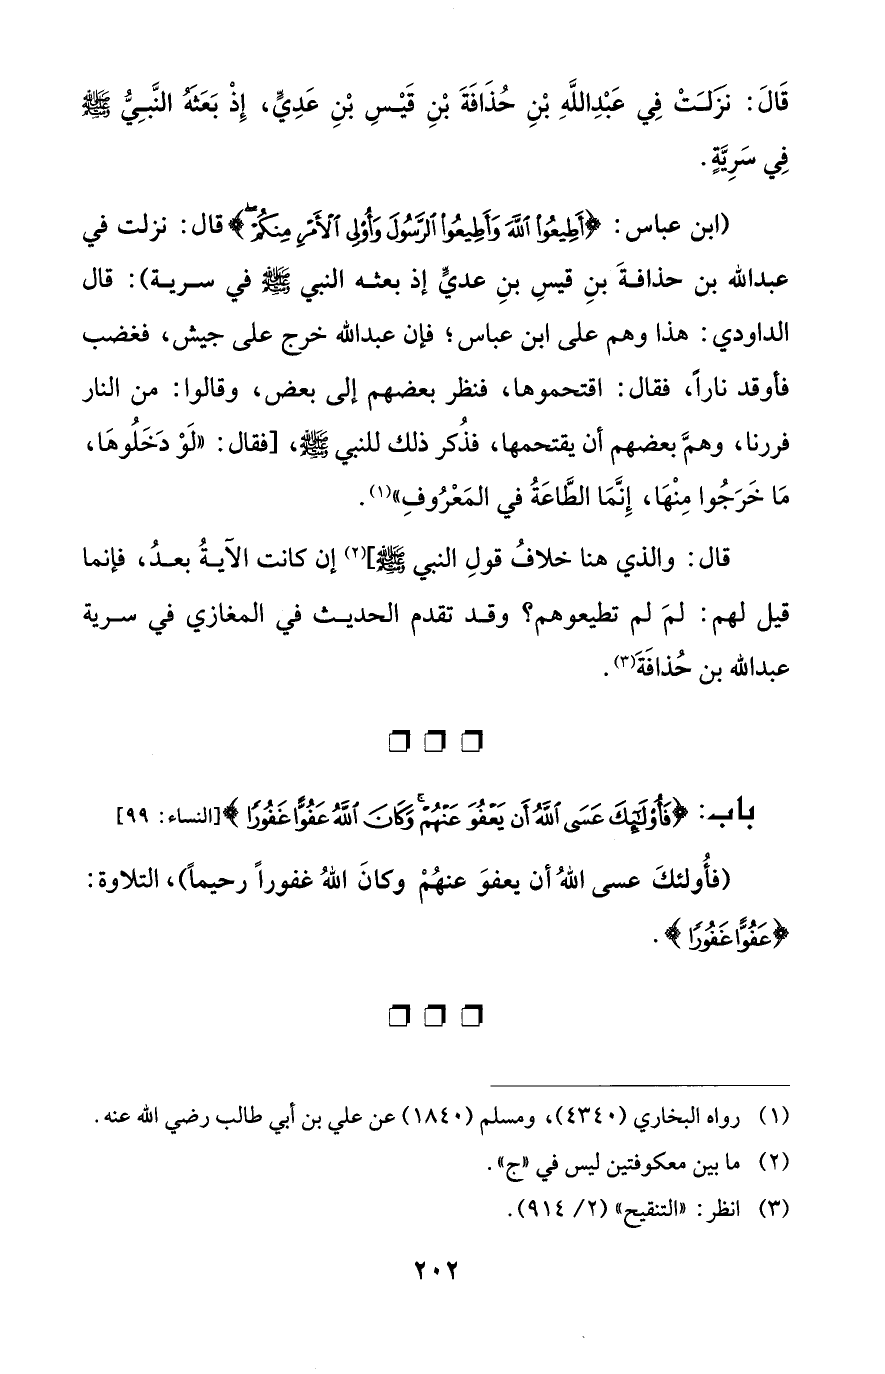 قَالَ: نَزَلَتْ فِي عَبْدِاللَّهِ بْنِ حُذَافَةَ بْنِ قَيْسِ بْنِ عَدِيٍّ، إِذْ بَعَثَهُ النَّبِيُّ ﷺ
فِي سَرِيَّةٍ.
(ابن عباس: ﴿أَطِيعُوا۟ ٱللَّهَ وَأَطِيعُوا۟ ٱلرَّسُولَ وَأُو۟لِى ٱلْأَمْرِ مِنكُمْ ۖ﴾ قال: نزلت في
عبدالله بن حذافةَ بنِ قيسِ بنِ عديٍّ إذ بعثه النبي ﷺ في سرية): قال
الداودي: هذا وهم على ابن عباس؛ فإن عبدالله خرج على جيش، فغضب
فأوقد ناراً، فقال: اقتحموها، فنظر بعضهم إلى بعض، وقالوا: من النار
فررنا، وهمَّ بعضهم أن يقتحمها، فذُكر ذلك للنبي ﷺ، [فقال: «لَوْ دَخَلُوهَا،
مَا خَرَجُوا مِنْهَا، إِنَّمَا الطَّاعَةُ في المَعْرُوفِ»(١).
قال: والذي هنا خلافُ قولِ النبي ﷺ](٢) إن كانت الآيةُ بعدُ، فإنما
قيل لهم: لمَ لم تطيعوهم؟ وقد تقدم الحديث في المغازي في سرية
عبدالله بن حُذافَةَ(٣).
باب: ﴿فَأُو۟لَٰٓئِكَ عَسَى ٱللَّهُ أَن يَعْفُوَ عَنْهُمْ ۚ وَكَانَ ٱللَّهُ عَفُوًّا غَفُورًا﴾ [النساء: ٩٩]
(فأُولئكَ عسى اللهُ أن يعفوَ عنهُمْ وكانَ اللهُ غفوراً رحيماً)، التلاوة:
﴿عَفُوًّا غَفُورًا﴾.
(١) رواه البخاري (٤٣٤٠)، ومسلم (١٨٤٠) عن علي بن أبي طالب رضي الله عنه.
(٢) ما بين معكوفتين ليس في «ج».
(٣) انظر: «التنقيح» (٢/ ٩١٤).
٢٠٢